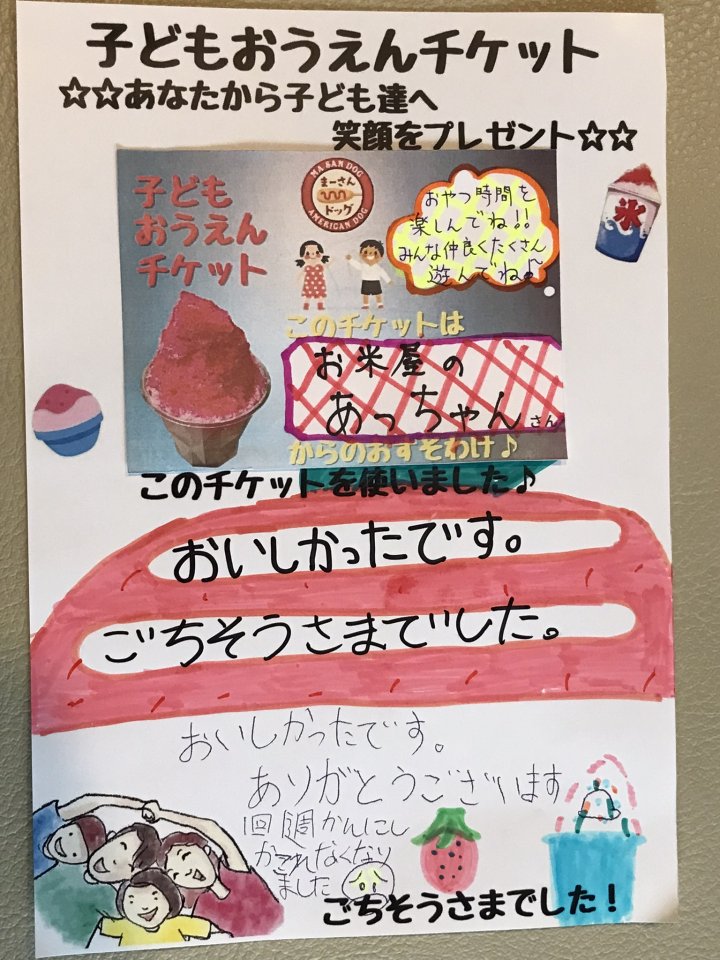 子どもおうえんチケット
☆☆あなたから子ども達へ
笑顔をプレゼント☆☆
子ども
おうえん
チケット
MA SAN DOG
まーさん
ドッグ
AMERICAN DOG
おやつ時間を
楽しんでね!!
みんな仲良くたくさん
遊んでね♪
氷
このチケットは
お米屋の
あっちゃん さん
からのおすそわけ♪
このチケットを使いました♪
おいしかったです。
ごちそうさまでした。
おいしかったです。
ありがとうございます
1回週かんにし
かこれなくなり
ました
ごちそうさまでした!